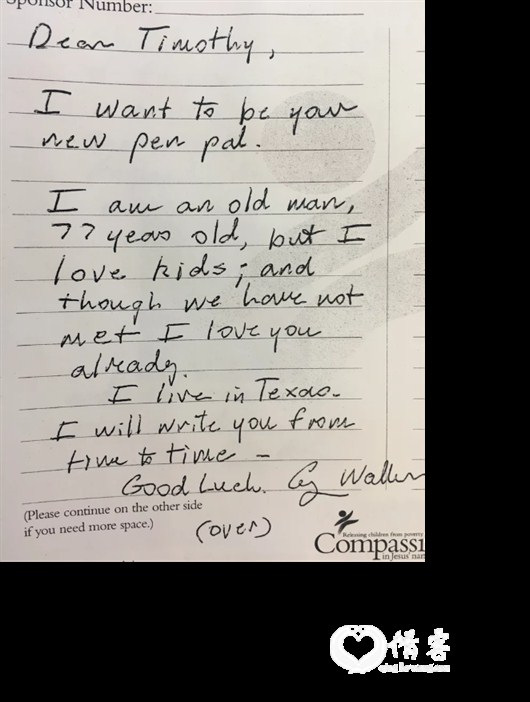 Sponsor Number:
Dear Timothy,
I want to be your
new pen pal.
I am an old man,
77 years old, but I
love kids; and
though we have not
met I love you
already.
I live in Texas.
I will write you from
time to time –
Good Luck. Walker
(Please continue on the other side
if you need more space.)
(over)
Releasing children from poverty
Compassi
in Jesus' nam
惜客